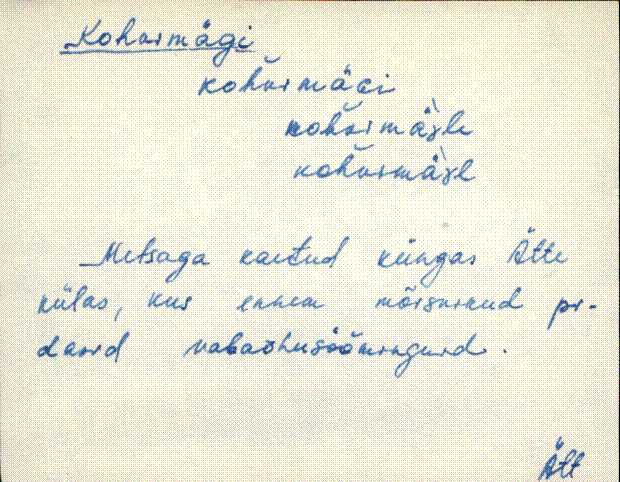 Kohvimägi
kohvimäɢi
kohvimäele
kohvimäel
Metsaga kaetud küngas Ätte
külas, kus ennem mõisnikud pi-
dasid vabaõhusöömingud.
Ätt